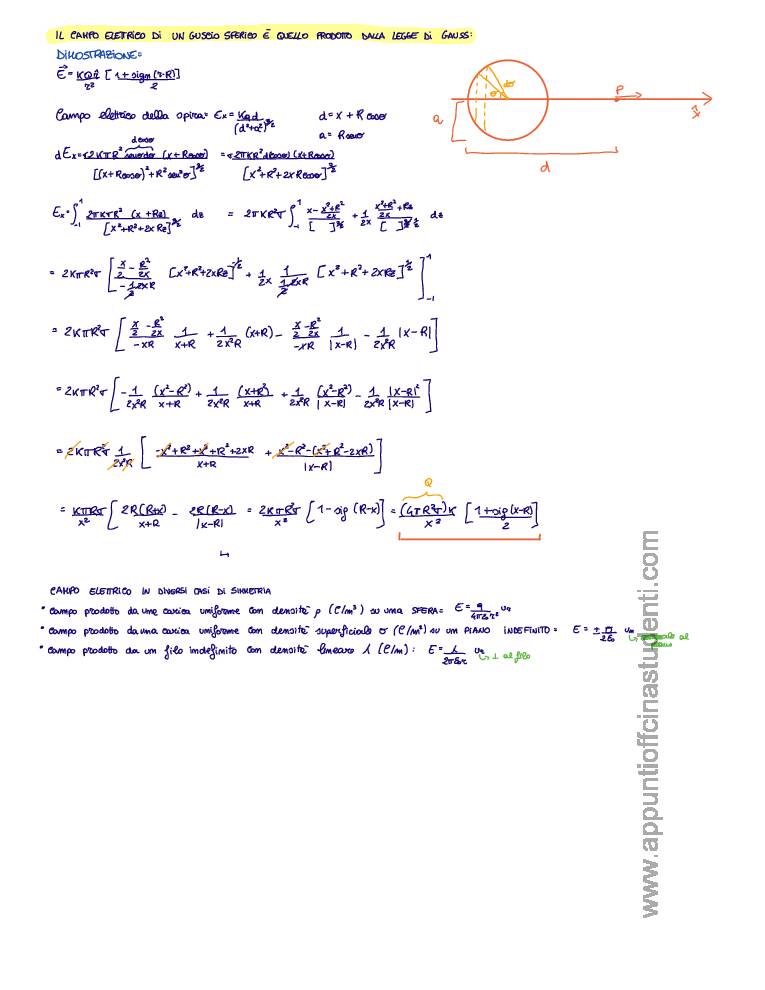 IL CAMPO ELETTRICO DI UN GUSCIO SFERICO È QUELLO PRODOTTO DALLA LEGGE DI GAUSS:
DIMOSTRAZIONE:
E⃗ = KQn̂/r² [1+sign(r-R)]/2
P
dσ
σ
a
x̂
d
Campo elettrico della spira: Ex = KQd/(d²+a²)^3/2   d = x + Rcosσ
a = Rsenσ
dcosσ
dEx = σ2KπR² senσdσ (x+Rcosσ)/[(x+Rcosσ)²+R²sen²σ]^3/2 = σ2πKR²dcosσ (x+Rcosσ)/[x²+R²+2xRcosσ]^3/2
Ex = ∫₋₁¹ 2πKσR² (x+Rz)/[x²+R²+2xRz]^3/2 dz = 2πKR²σ ∫₋₁¹ (x-(x²+R²)/2x)/[ ]^3/2 + 1/2x ((x²+R²)/2x+Rz)/[ ]^3/2 dz
= 2KπR²σ [ (x/2 - R²/2x)/(-1/2 2xR) [x²+R²+2xRz]^-1/2 + 1/2x 1/(1/2 2xR) [x²+R²+2xRz]^1/2 ]₋₁¹
= 2KπR²σ [ (x/2 - R²/2x)/-xR 1/(x+R) + 1/2x²R (x+R) - (x/2 - R²/2x)/-xR 1/|x-R| - 1/2x²R |x-R| ]
= 2KπR²σ [ -1/2x²R (x²-R²)/(x+R) + 1/2x²R (x+R)²/(x+R) + 1/2x²R (x²-R²)/|x-R| - 1/2x²R |x-R|²/|x-R| ]
= 2KπR²σ 1/2x²R [ (-x²+R²+x²+R²+2xR)/(x+R) + (x²-R²-(x²+R²-2xR))/|x-R| ]
Q
= KπRσ/x² [ 2R(R+x)/(x+R) - 2R(R-x)/|x-R| ] = 2KπR²σ/x² [1-sig(R-x)] = (4πR²σ)K/x² [ (1+sig(x-R))/2 ]
CAMPO ELETTRICO IN DIVERSI CASI DI SIMMETRIA
• Campo prodotto da una carica uniforme con densità ρ (C/m³) su una SFERA: E = q/4πε₀r² ur
• Campo prodotto da una carica uniforme con densità superficiale σ (C/m²) su un PIANO INDEFINITO: E = ± σ/2ε₀ un
• Campo prodotto da un filo indefinito con densità lineare λ (C/m): E = λ/2πε₀r ur ↳ ⊥ al filo
www.appuntioffcinastudenti.com